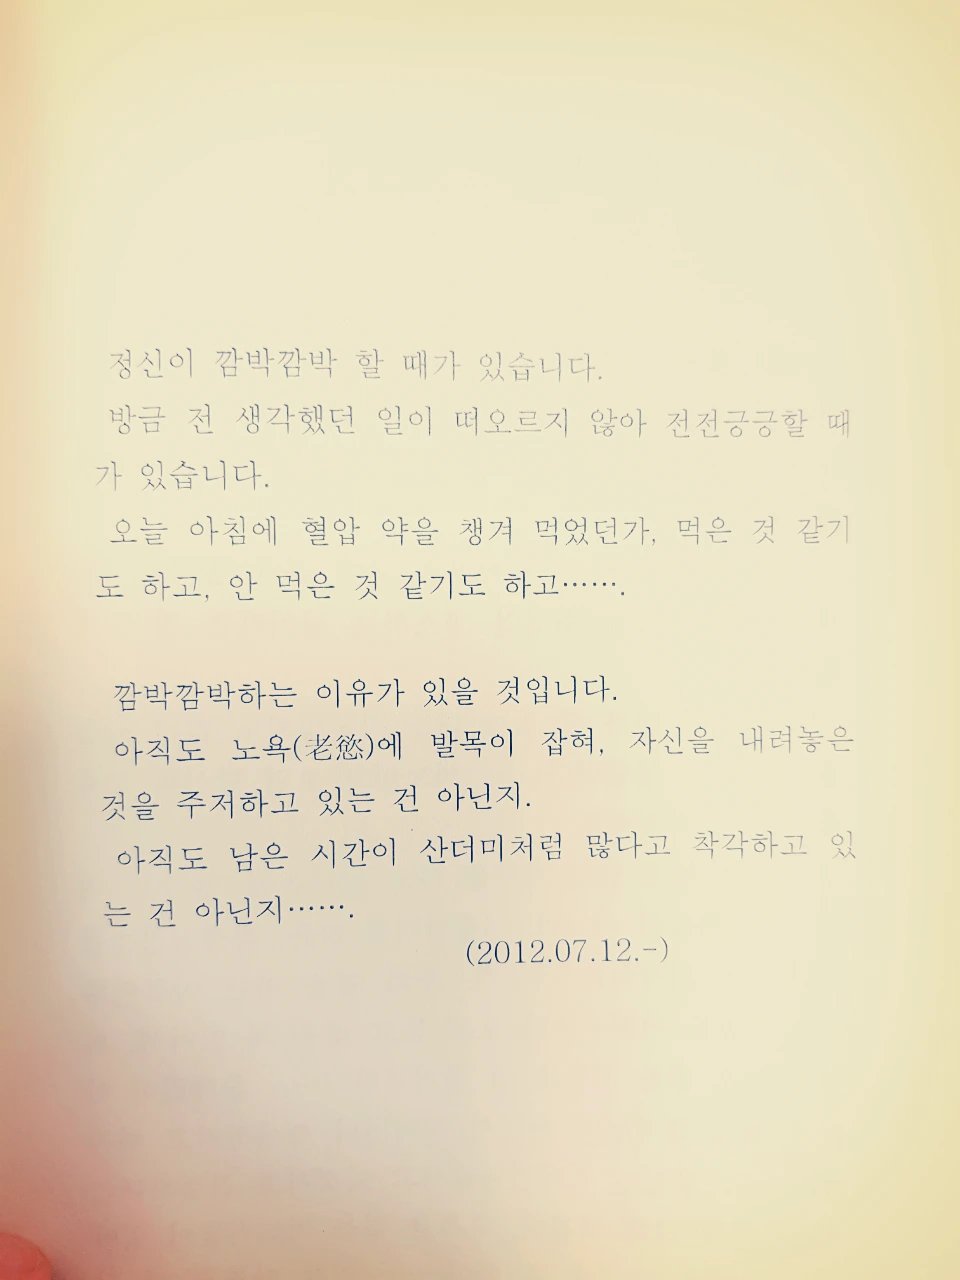 정신이 깜박깜박 할 때가 있습니다.
방금 전 생각했던 일이 떠오르지 않아 전전긍긍할 때
가 있습니다.
오늘 아침에 혈압 약을 챙겨 먹었던가, 먹은 것 같기
도 하고, 안 먹은 것 같기도 하고…….
깜박깜박하는 이유가 있을 것입니다.
아직도 노욕(老慾)에 발목이 잡혀, 자신을 내려놓은
것을 주저하고 있는 건 아닌지.
아직도 남은 시간이 산더미처럼 많다고 착각하고 있
는 건 아닌지…….
(2012.07.12.-)